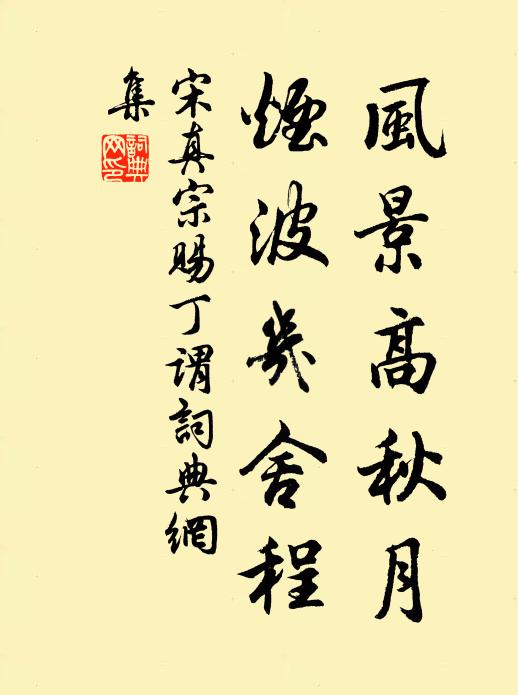 風景高秋月
煙波幾舍程
宋真宗賜丁謂詞典網
集
詞典
网印